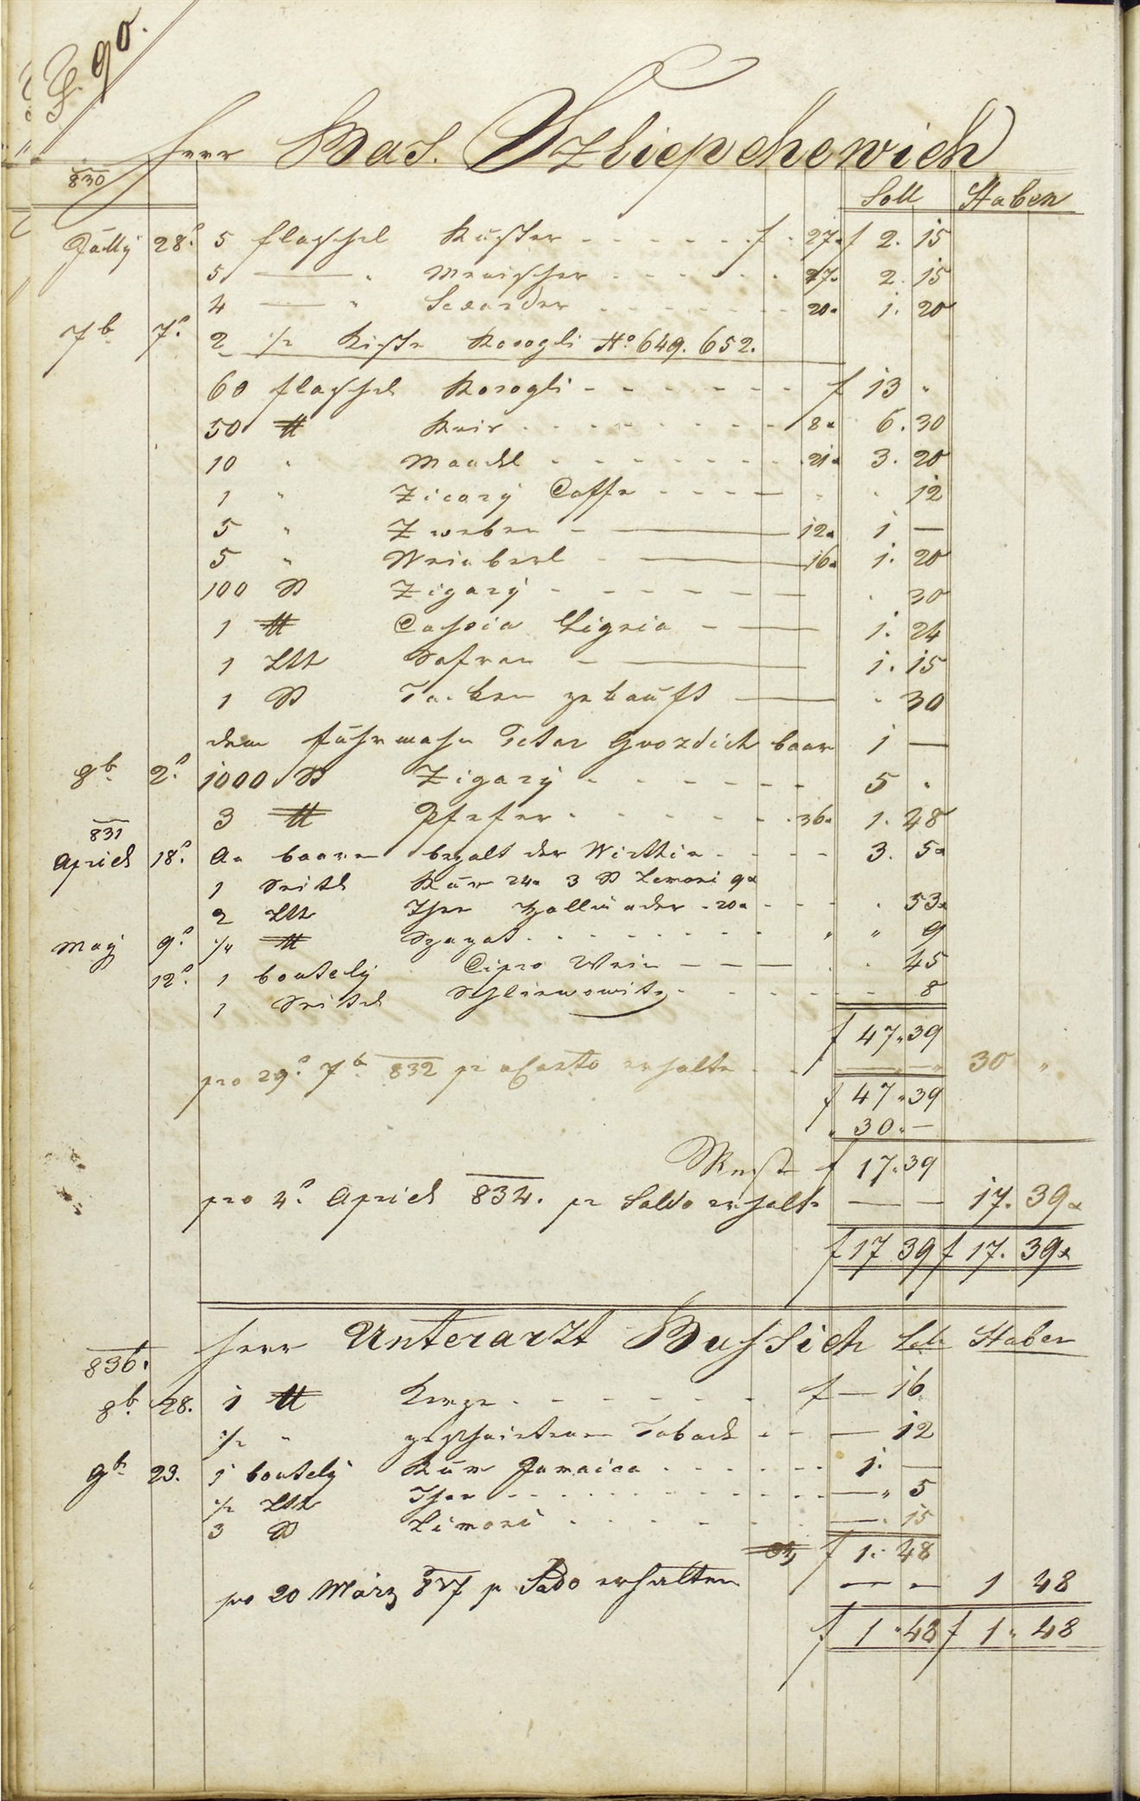 90.
Herr Bas. Szliepchewich
830
Soll Haben
July 28. 5 flaschel Ruster - - - - f 27x f 2. 15
5 — " Menischer - - - - 27x 2. 15
4 — " - - - - 20x 1. 20
7b 7. 2 1/2 Kiste Rosogli No 649. 652.
60 flaschel Rosogli - - - - f 13 "
50 ℔ Reis - - - - 8x 6. 30
10 " Mandl - - - - 21x 3. 20
1 " Zicory Caffe - - - - " " 12
5 " Zweben - — 12x 1 —
5 " Weinberl - — 16x 1. 20
100 St Zigary - - - - " 30
1 ℔ Cassia Lignia - — 1. 24
1 Lth Safran - — 1. 15
1 St gekauft — " 30
dem fuhrmahn Petar Gvozdich baar 1 —
8b 2. 1000 St Zigary - - - - 5 "
3 ℔ Pfefer - - - - 36x 1. 48
831
April 18. An baaren bezalt der Wirthin - - - - 3. 5x
1 Seitl Rum 24x 3 St Lemoni 9x
2 Lth Thee 20x - - - " 53x
May 9. 1/4 ℔ - - - - " " 9
12. 1 boutely Cipro Wein - — " 45
1 Seitel Schliwowitz - - - - 8
f 47 " 39
pro 29. 7b 832 pr aConto erhalte - - — — 30 "
f 47 " 39
" 30 " —
Rest f 17 " 39
pro 4. April 834. pr Saldo erhalte — — 17. 39x
f 17 39 f 17. 39x
Herr Unterarzt Bussich Soll Haben
836.
8b 28. 1 ℔ Kerze - - - - f — 16
1/2 " geschnittenen Taback - - — 12
9b 23. 1 boutely Rum Jamaica - - - - 1. —
1/2 Lth Thee - - - - — " 5
3 St Limoni - - - - — " 15
f 1 " 48
pro 20 März 837 p Saldo erhalten — — 1 48
f 1 " 48 f 1 " 48